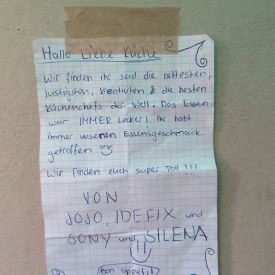 Hallo Liebe Küche
Wir finden ihr seid die nettesten,
lustigsten, kreativsten & die besten
Küchenchefs der Welt. Das Essen
war IMMER Lecker! Ihr habt
immer unseren Essensgeschmack
getroffen
Wir finden euch super Toll!!!
VON
JOJO, IDEFIX und
SONY und SILENA
Bon appetit